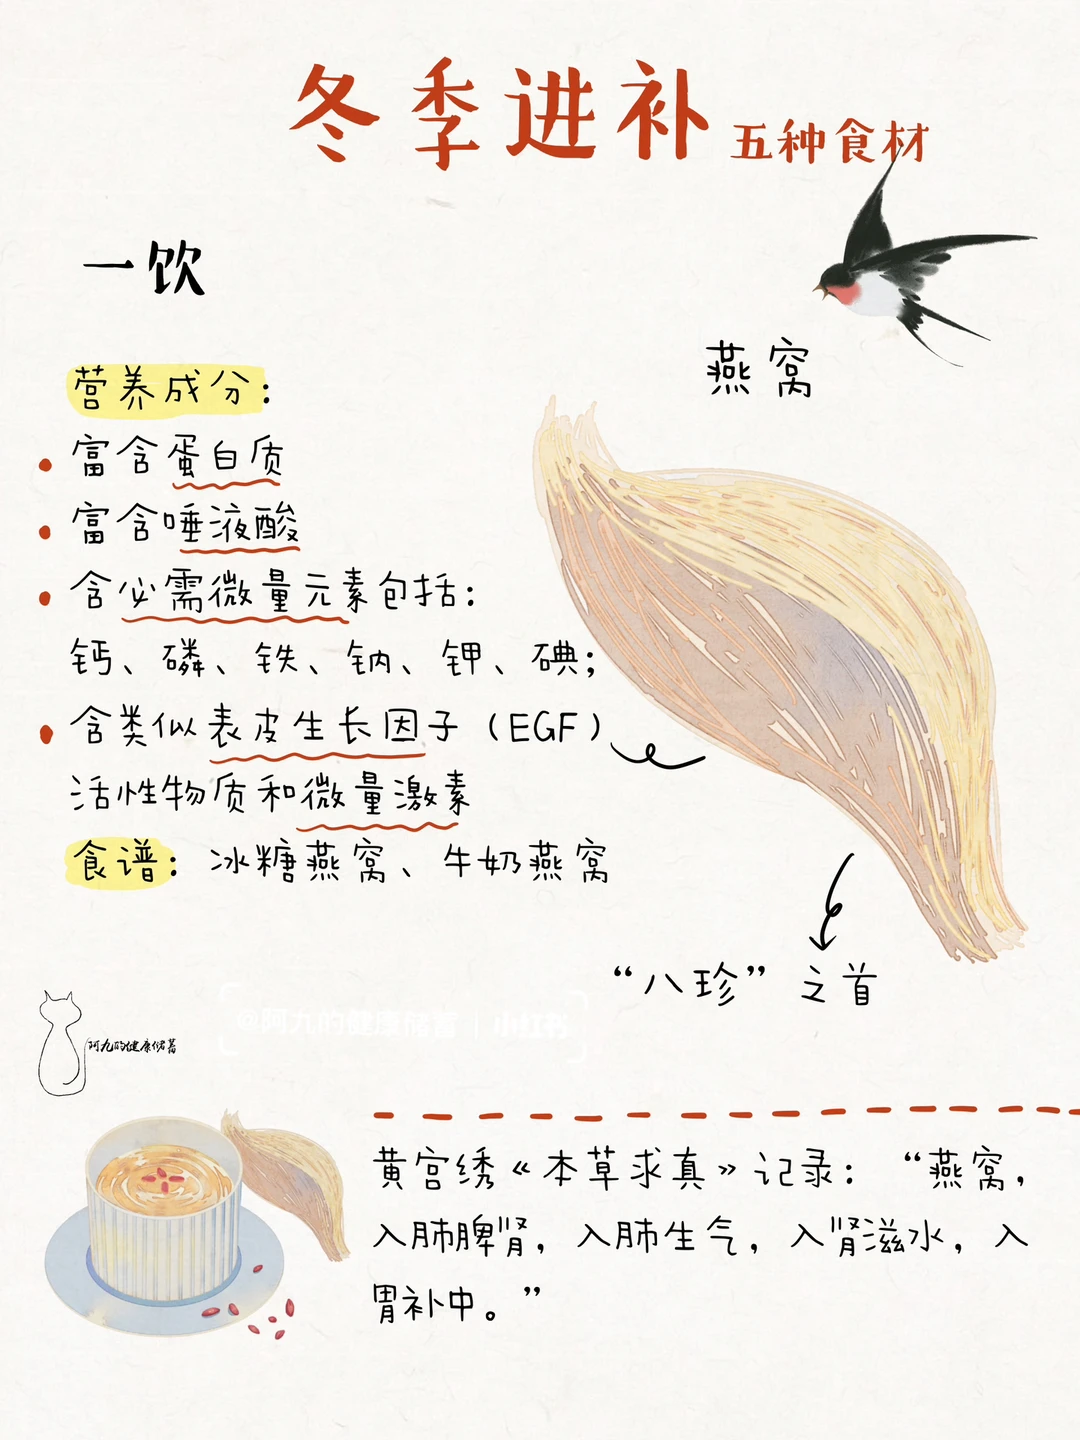 冬季进补 五种食材
一饮
燕窝
营养成分：
富含蛋白质
富含唾液酸
含必需微量元素包括：
钙、磷、铁、钠、钾、碘；
含类似表皮生长因子（EGF）
活性物质和微量激素
食谱：冰糖燕窝、牛奶燕窝
“八珍”之首
@阿九的健康储蓄 | 小红书
阿九的健康储蓄
黄宫绣《本草求真》记录：“燕窝，
入肺脾肾，入肺生气，入肾滋水，入
胃补中。”